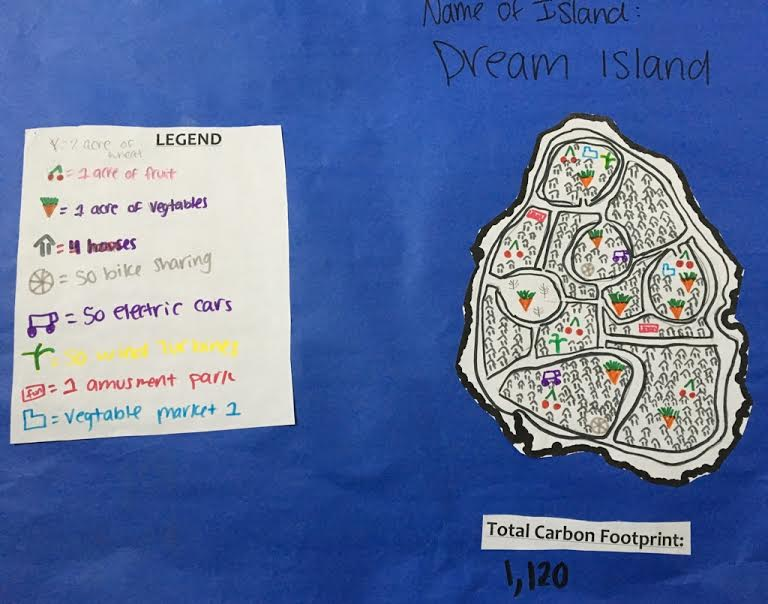 Name of Island:
Dream Island
LEGEND
Y = 2 acre of
wheat
= 1 acre of fruit
= 1 acre of vegtables
= 4 houses
= 50 bike sharing
= 50 electric cars
= 50 wind turbines
fun = 1 amusment park
= vegtable market 1
Total Carbon Footprint:
1,120